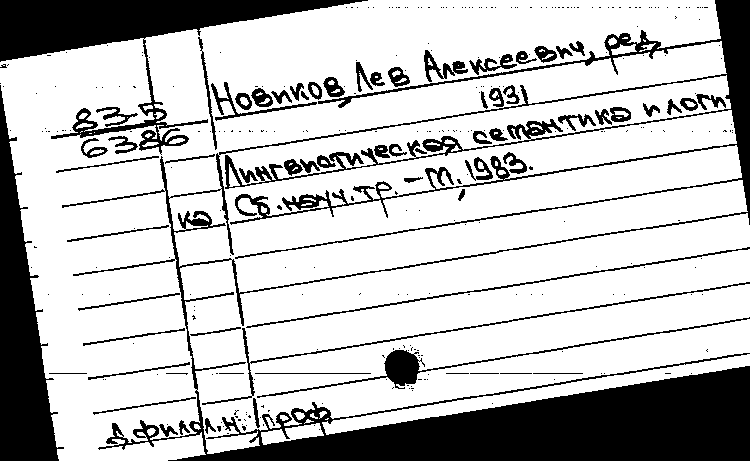 83-5
6386
Новиков, Лев Алексеевич, ред.
1931
Лингвистическая семантика и логи-
ка Сб. науч. тр. – М., 1983.
Д. филол. н., проф